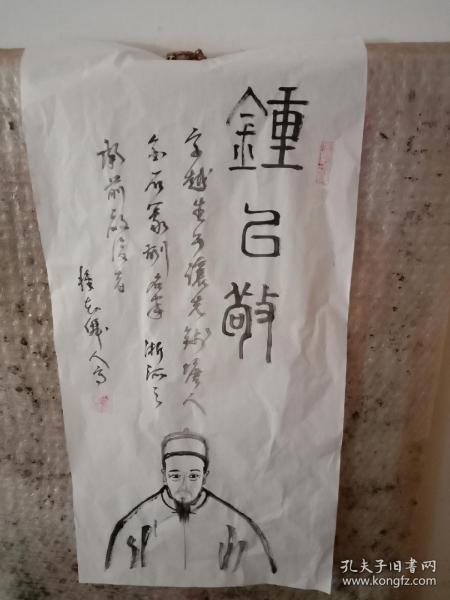 鍾以敬
字越生号讓先錢塘人
金石篆刻名家 浙派之
承前啟後者
人写
孔夫子旧书网
www.kongfz.com